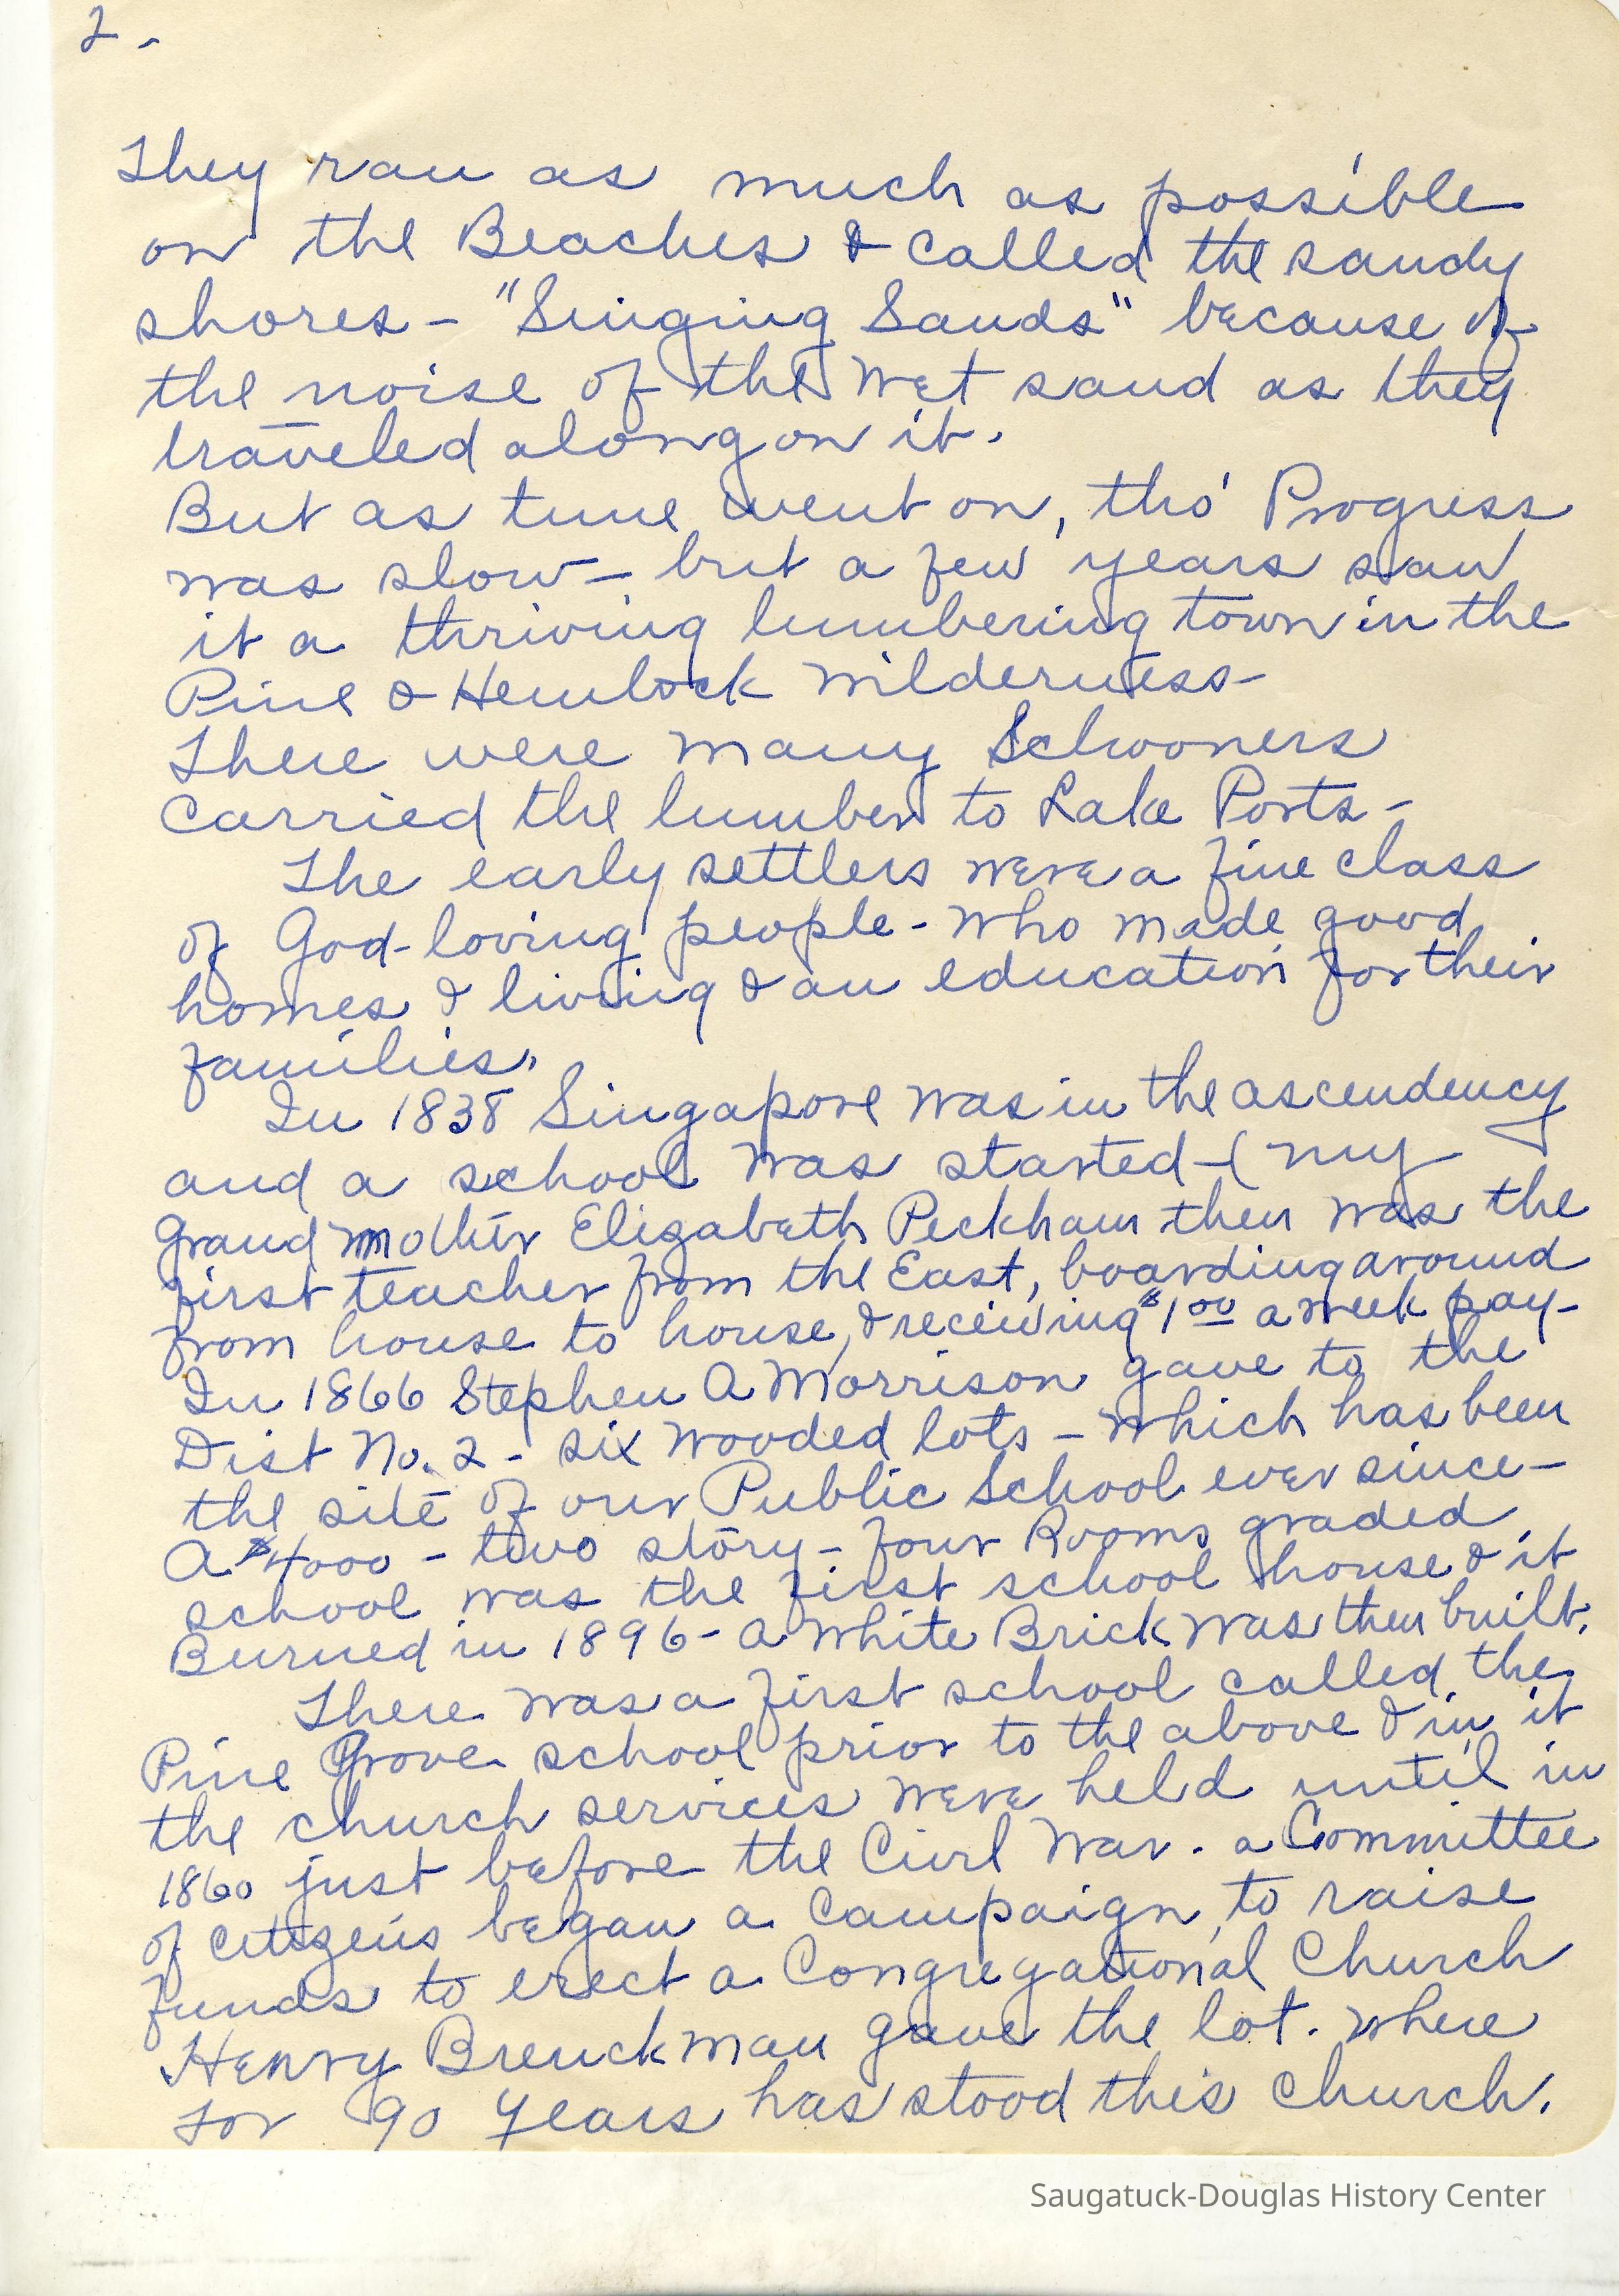 2 -
They ran as much as possible
on the Beaches & called the sandy
shores - "Singing Sands" because of
the noise of the wet sand as they
traveled along on it.
But as time went on, tho' Progress
was slow - but a few years saw
it a thriving lumbering town in the
Pine & Hemlock Wilderness-
There were many Schooners
carried the lumber to Lake Ports-
The early settlers were a fine class
of God-loving people - who made good
homes & living & an education for their
families.
In 1838 Singapore was in the ascendency
and a school was started - ( my
Grandmother Elizabeth Peckham then was the
first teacher from the East, boarding around
from house to house, & receiving $1 00 a week pay-
In 1866 Stephen A Morrison gave to the
Dist No. 2 - six wooded lots - which has been
the site of our Public School ever since-
A $4000 - two story - four Rooms graded
school was the first school house & it
Burned in 1896 - a white Brick was then built.
There was a first school called the
Pine Grove school prior to the above & in it
the church services were held until in
1860 just before the Civil War. a Committee
of citizens began a Campaign to raise
funds to erect a Congregational Church
Henry Breuckman gave the lot. where
for 90 years has stood this church.
Saugatuck-Douglas History Center